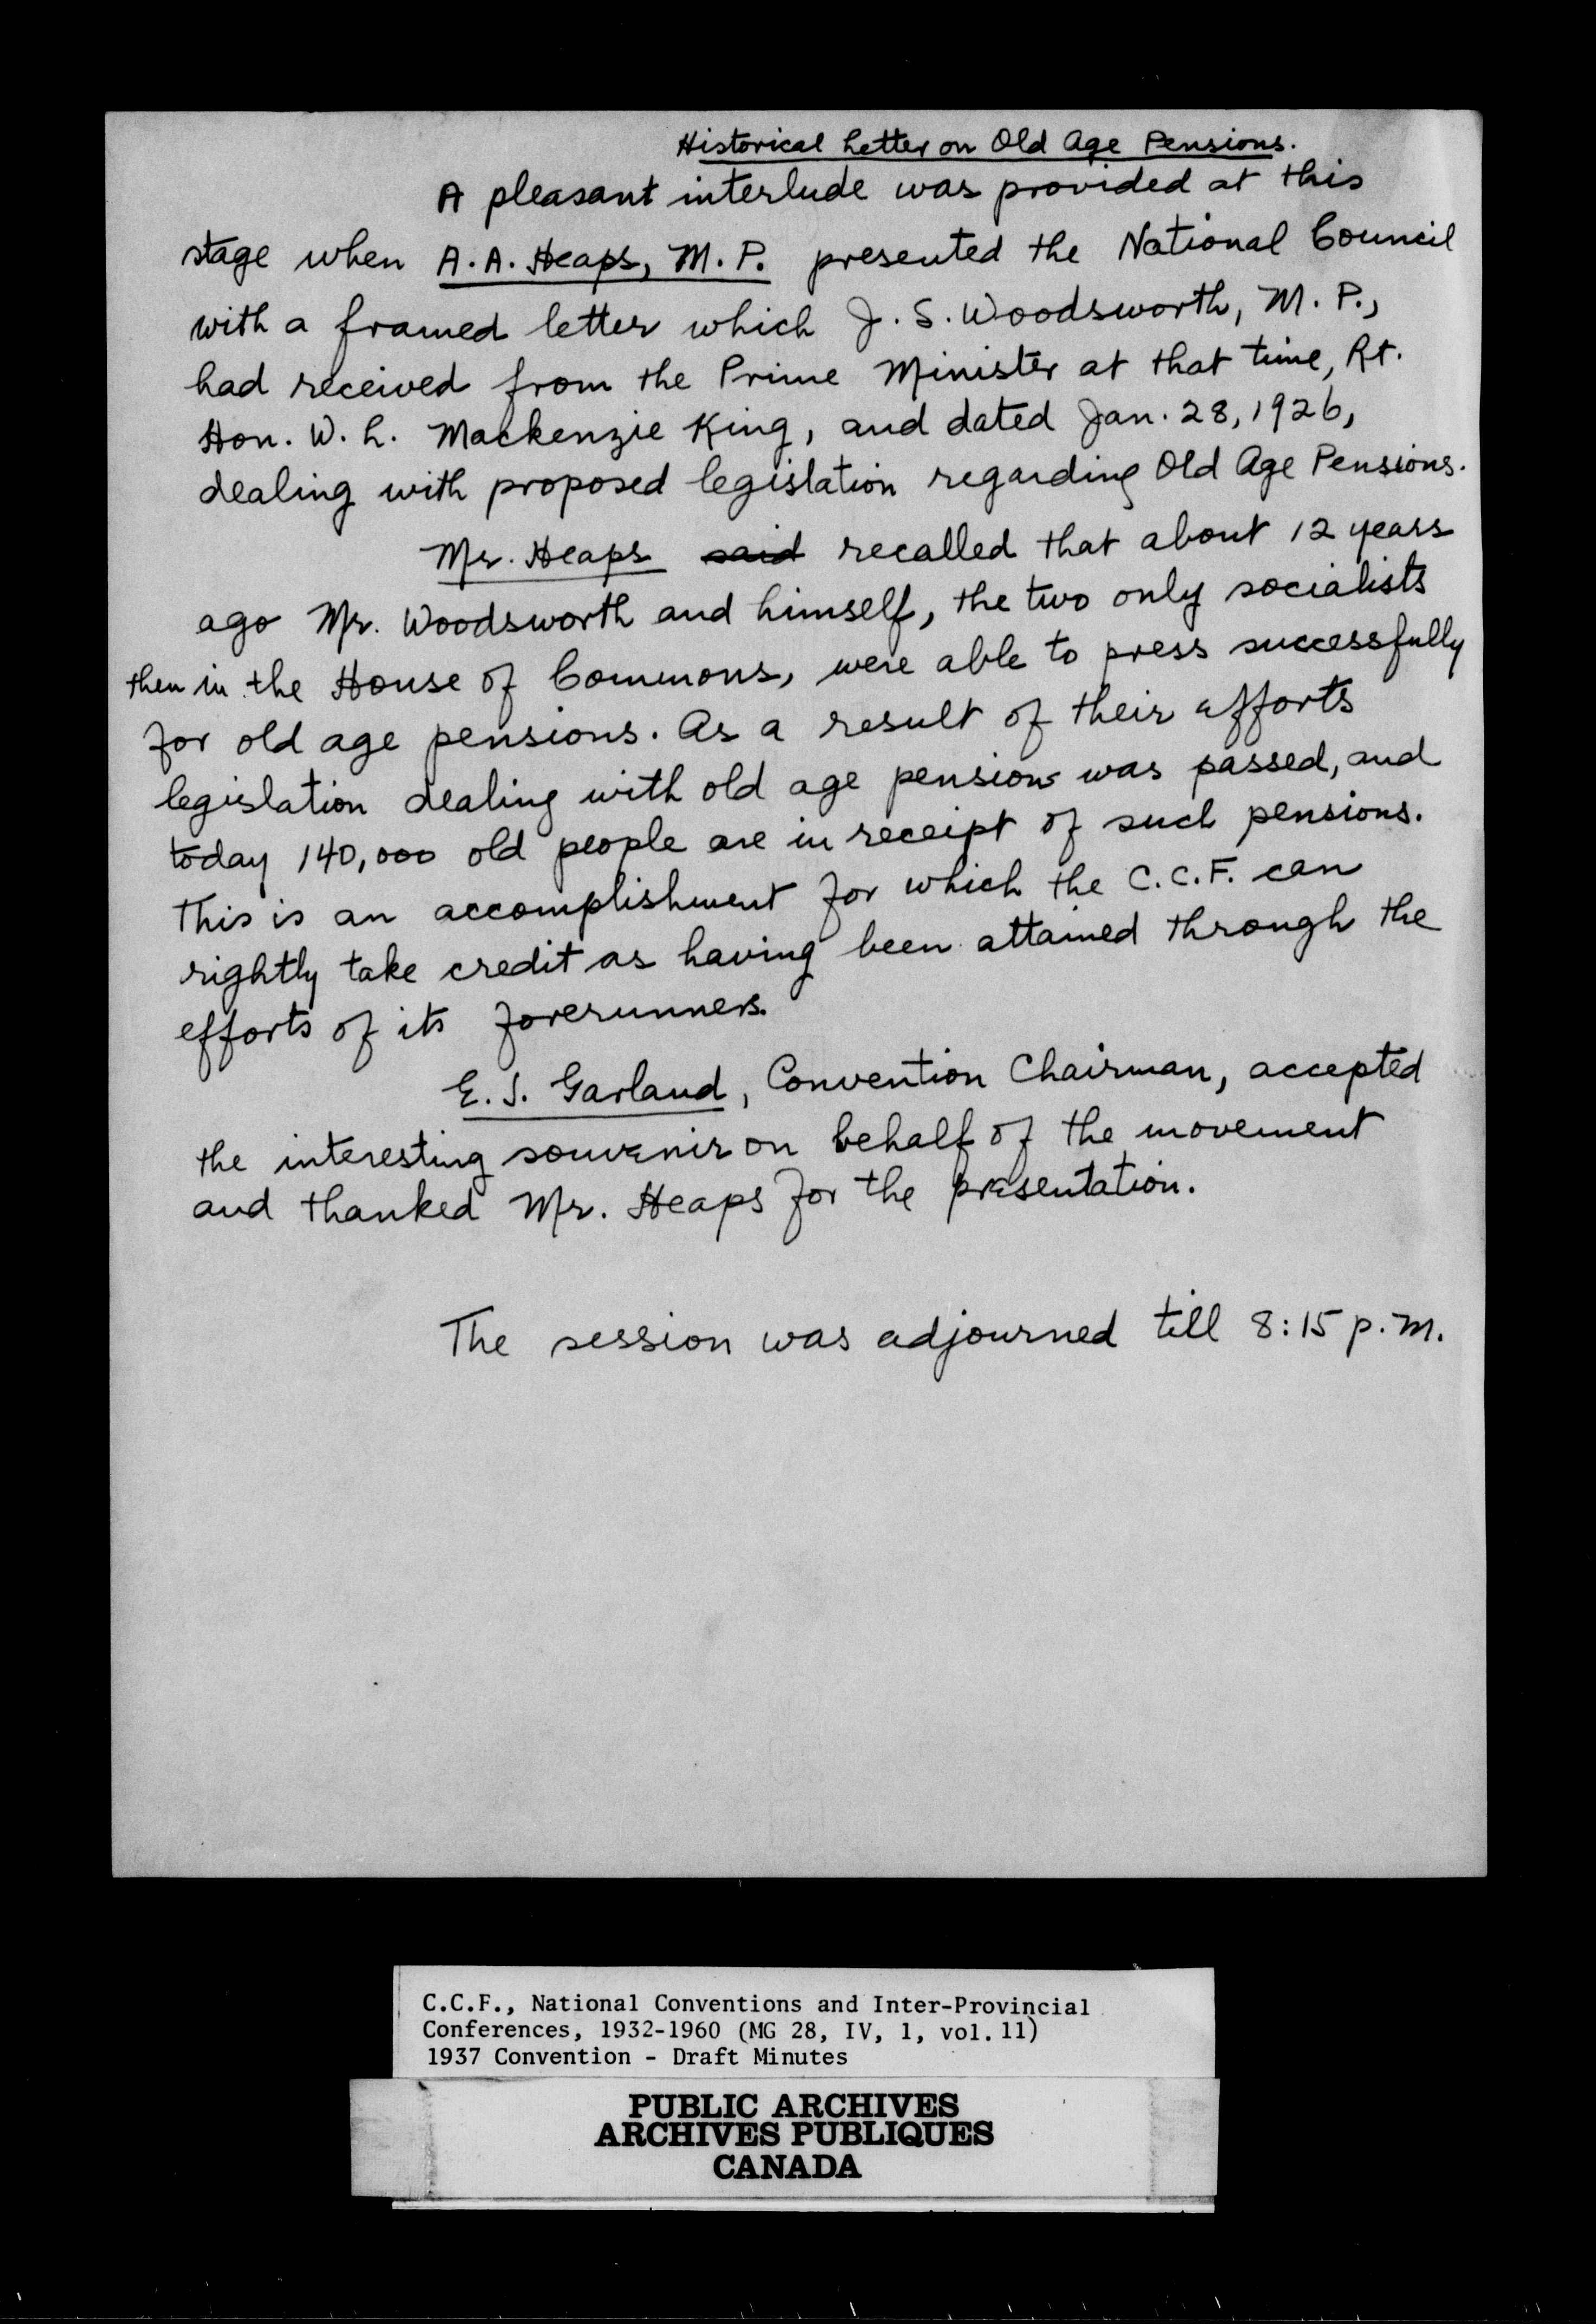 Historical Letter on Old Age Pensions.
A pleasant interlude was provided at this
stage when A.A. Heaps, M.P. presented the National Council
with a framed letter which J.S. Woodsworth, M.P.,
had received from the Prime Minister at that time, Rt.
Hon. W. L. Mackenzie King, and dated Jan. 28, 1926,
dealing with proposed legislation regarding Old Age Pensions.
Mr. Heaps said recalled that about 12 years
ago Mr. Woodsworth and himself, the two only socialists
then in the House of Commons, were able to press successfully
for old age pensions. As a result of their efforts
legislation dealing with old age pensions was passed, and
today 140,000 old people are in receipt of such pensions.
This is an accomplishment for which the C.C.F. can
rightly take credit as having been attained through the
efforts of its forerunners.
E. J. Garland, Convention Chairman, accepted
the interesting souvenir on behalf of the movement
and thanked Mr. Heaps for the presentation.
The session was adjourned till 8:15 p.m.
C.C.F., National Conventions and Inter-Provincial
Conferences, 1932-1960 (MG 28, IV, 1, vol. 11)
1937 Convention - Draft Minutes
PUBLIC ARCHIVES
ARCHIVES PUBLIQUES
CANADA